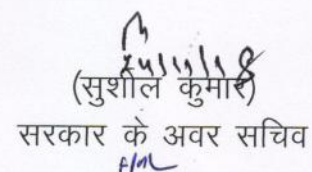 (सुशील कुमार)
सरकार के अवर सचिव